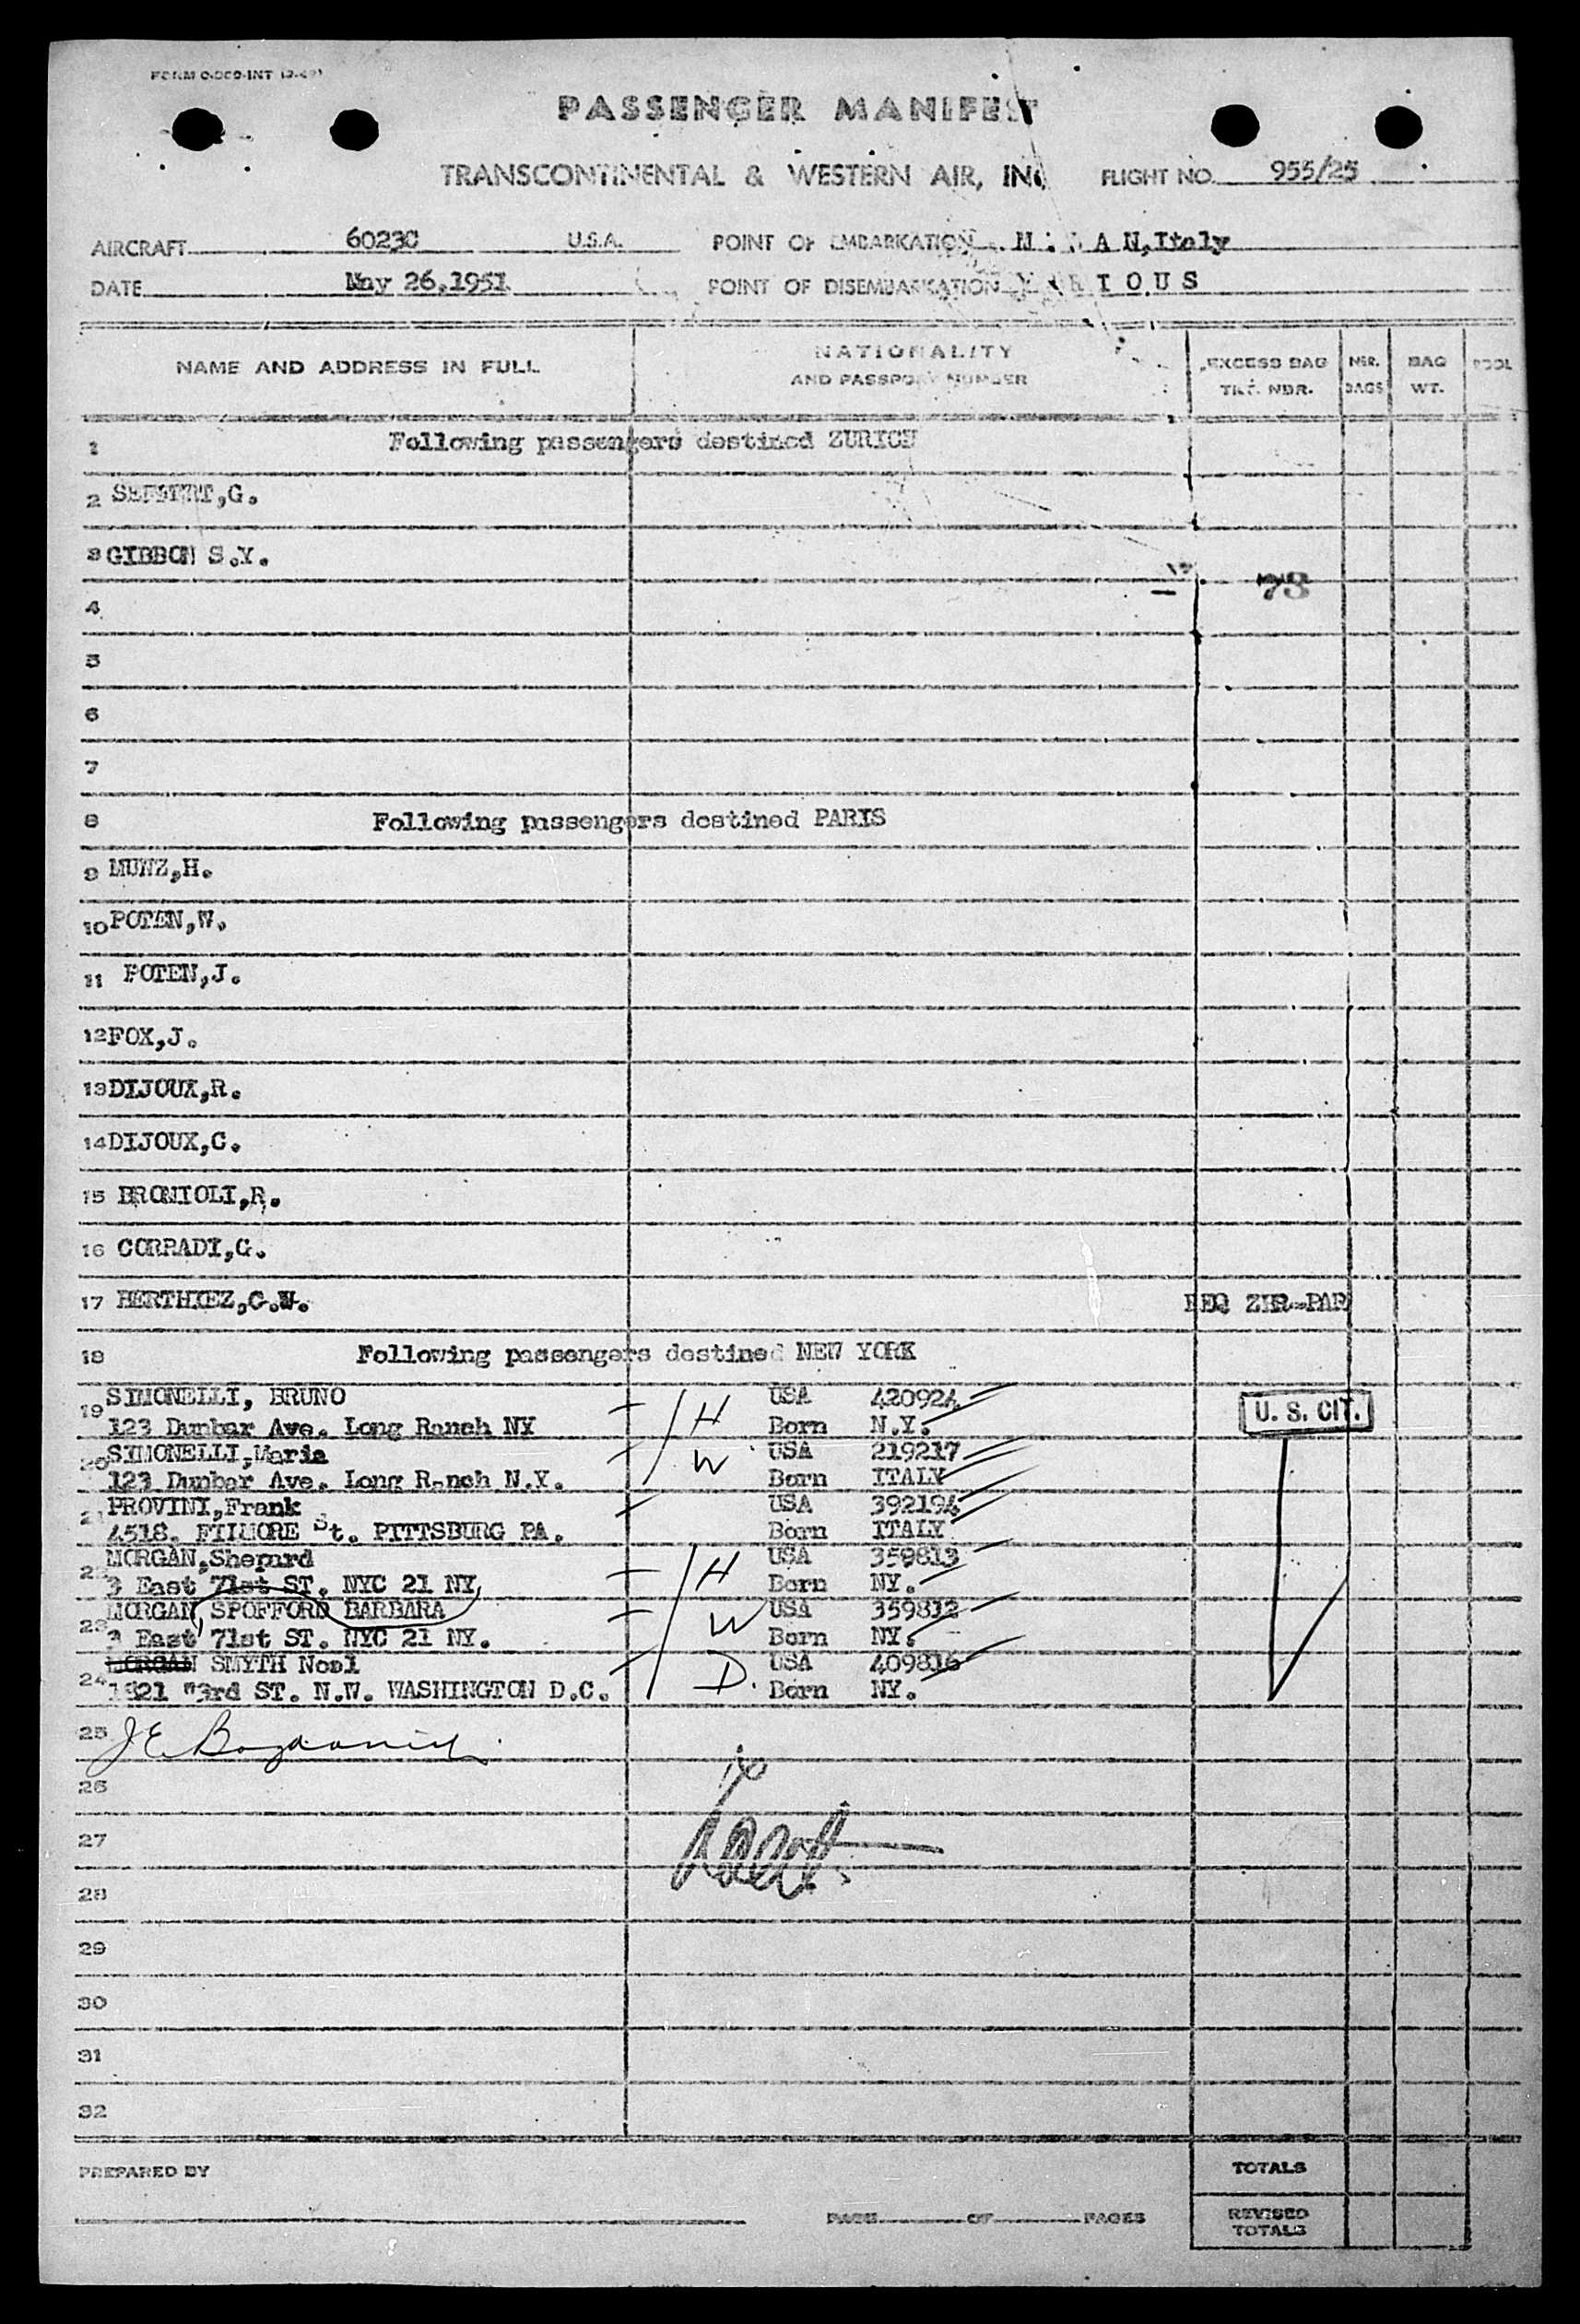 FORM 0-509-INT
PASSENGER MANIFEST
TRANSCONTINENTAL & WESTERN AIR, INC FLIGHT NO. 955/25
AIRCRAFT 6023C U.S.A. POINT OF EMBARKATION M I L A N, Italy
DATE May 26,1951 POINT OF DISEMBARKATION V A R I O U S
NAME AND ADDRESS IN FULL
NATIONALITY
AND PASSPORT NUMBER
EXCESS BAG
TKT. NBR.
NBR.
BAGS
BAG
WT.
POOL
1 Following passengers destined ZURICH
2 G.
3 GIBBON S.Y.
4 73
5
6
7
8 Following passengers destined PARIS
9 MUNZ,H.
10 POTEN,W.
11 POTEN,J.
12 FOX,J.
13 DIJOUX,R.
14 DIJOUX,C.
15 BRONIOLI,R.
16 CORRADI,G.
17 BERTHIEZ,C.W. REQ ZUR-PAR
18 Following passengers destined NEW YORK
19 SIMONELLI, BRUNO USA 420924
123 Dunbar Ave. Long Ranch NY H Born N.Y.
U. S. CIT.
20 SIMONELLI,Maria USA 219217
123 Dunbar Ave. Long Ranch N.Y. W Born ITALY
21 PROVINI,Frank USA 392194
4518. FILMORE St. PITTSBURG PA. Born ITALY
22 MORGAN,Shepard USA 359813
3 East 71st ST. NYC 21 NY H Born NY.
23 MORGAN, SPOFFORD BARBARA USA 359812
3 East 71st ST. NYC 21 NY. W Born NY.
24 MORGAN SMYTH Noel USA 409816
1321 ST. N.W. WASHINGTON D.C. D. Born NY.
25 J E
26
27
28
29
30
31
32
PREPARED BY
PAGE OF PAGES
TOTALS
REVISED
TOTALS